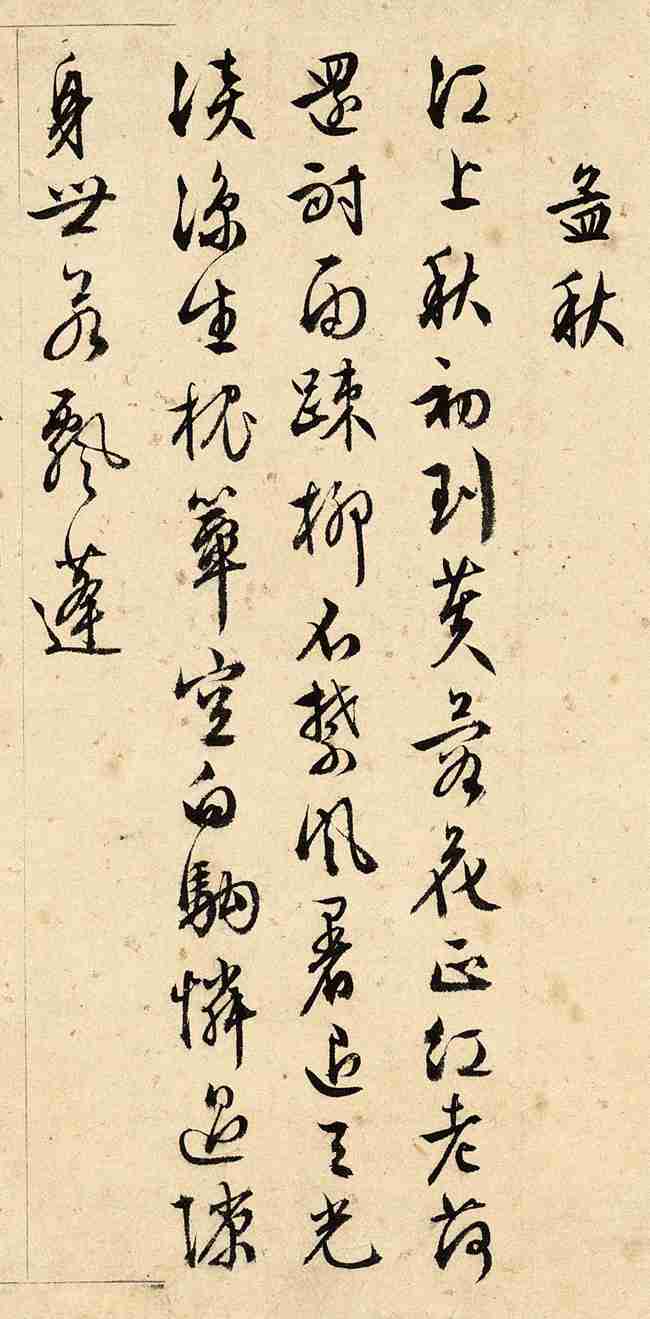 孟秋
江上秋初到芙蓉花正紅老荷
還耐雨踈柳不禁風暑退天光
淡涼生枕簟空白駒憐過隙
身世若飄蓬